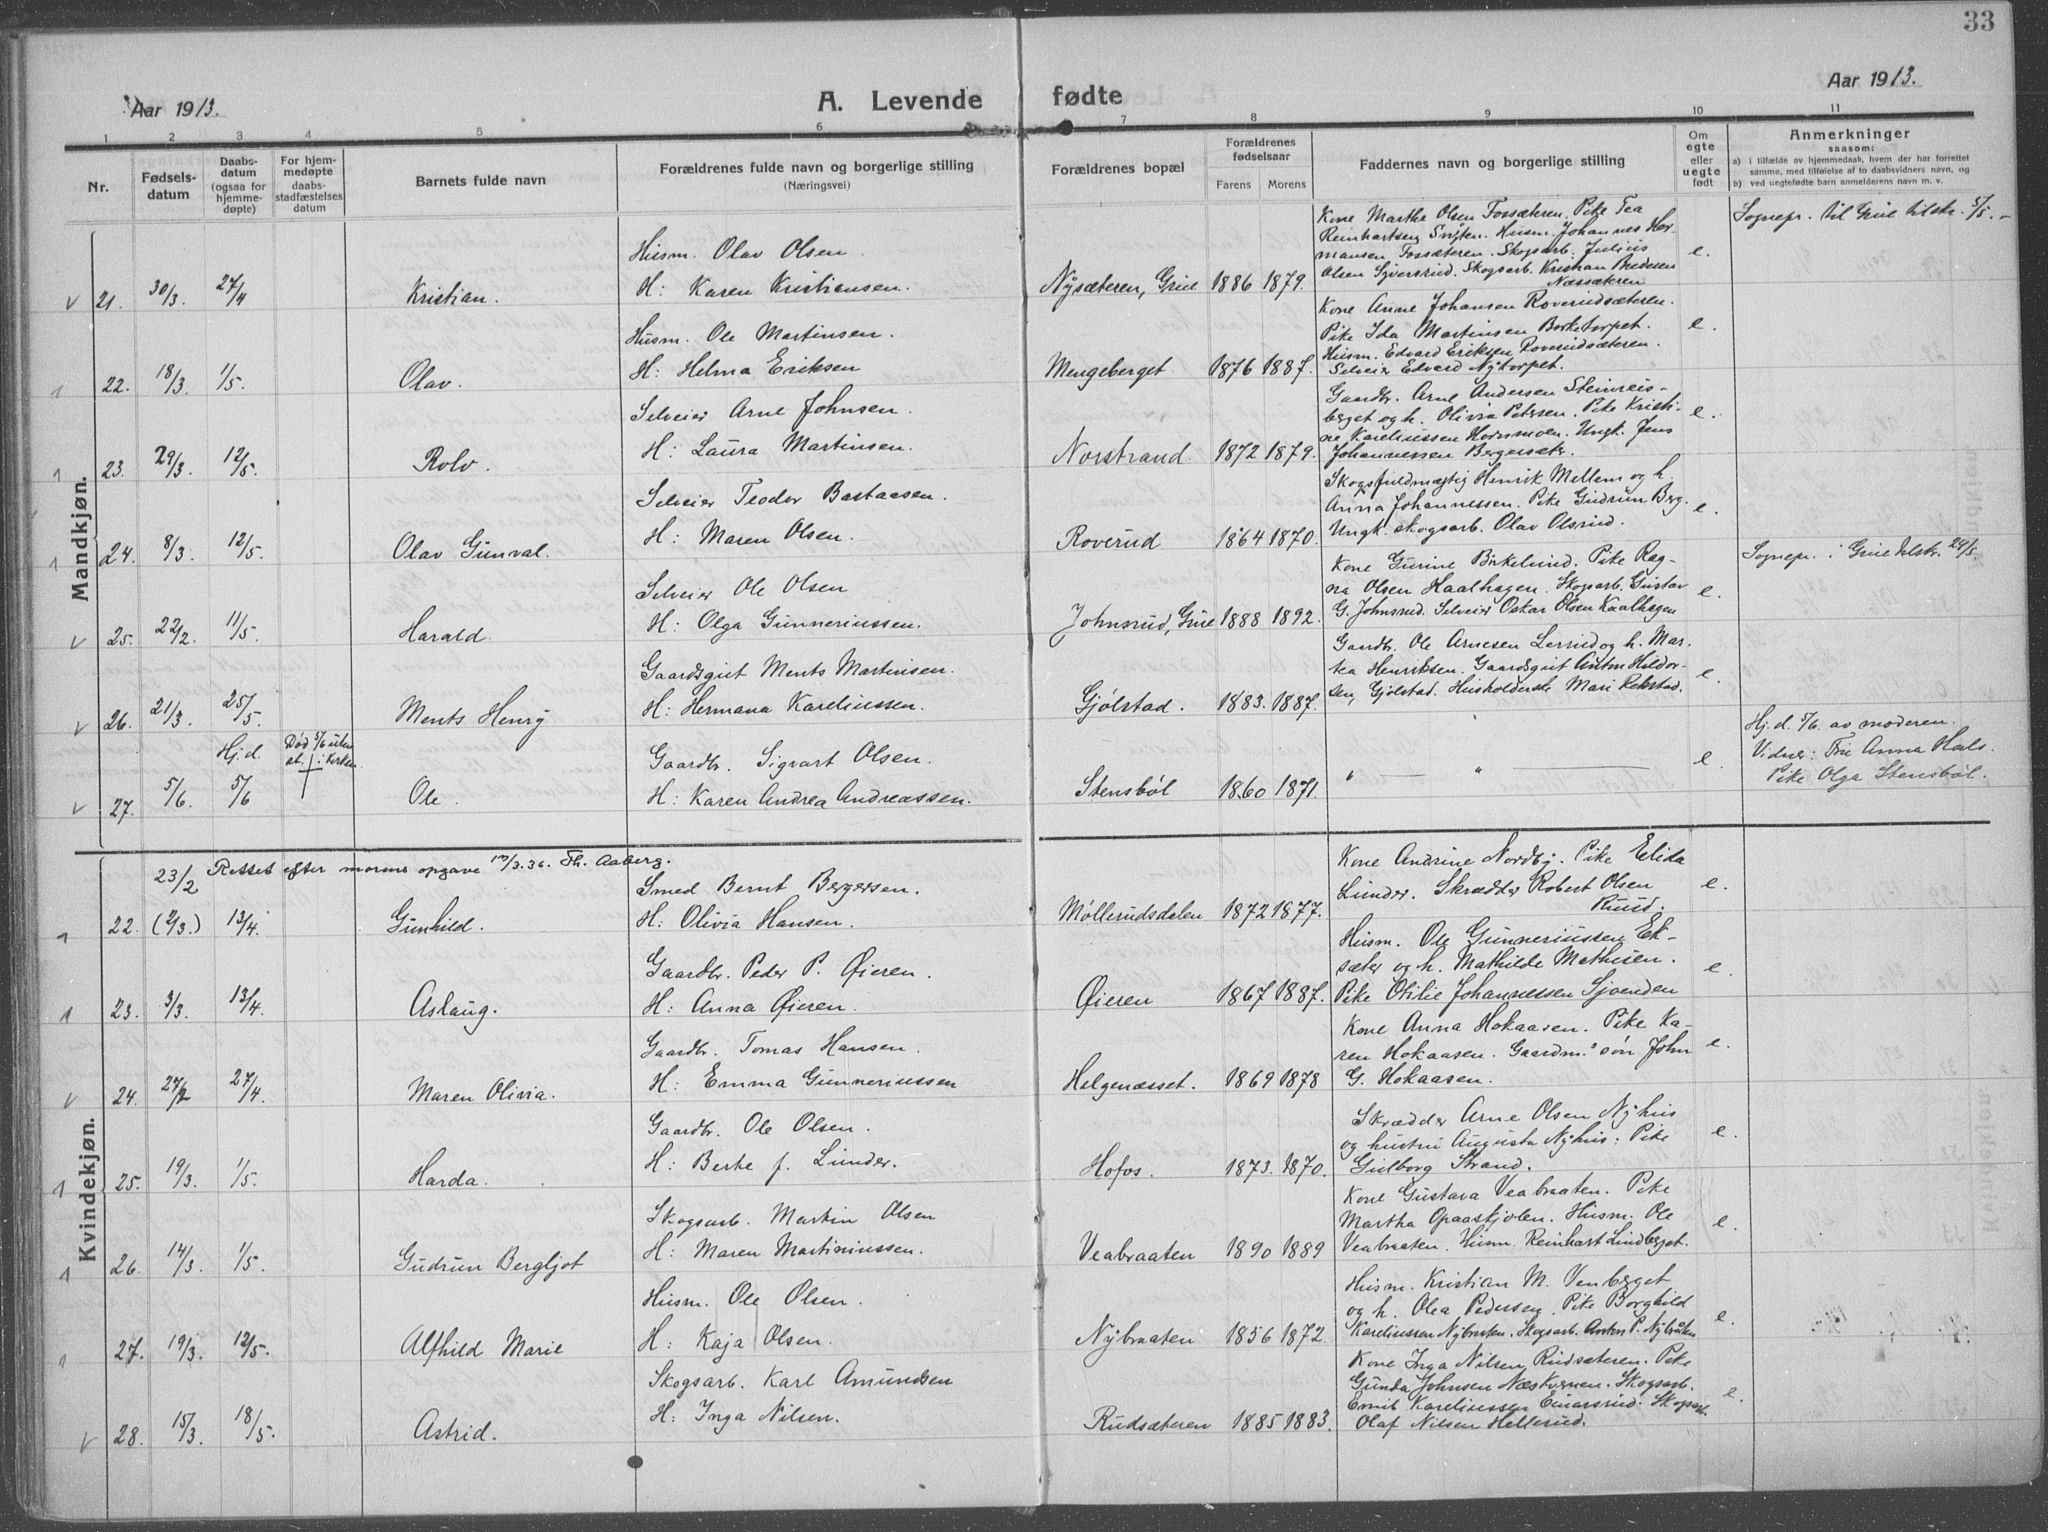 33
Aar 1913.
A. Levende fødte
Aar 1913.
1 2 3 4 5 6 7 8 9 10 11
Nr.
Fødsels-
datum
Daabs-
datum
(ogsaa for
hjemme-
døpte)
For hjem-
medøpte
daabs-
stadfæstelses
datum
Barnets fulde navn
Forældrenes fulde navn og borgerlige stilling
(Næringsvei)
Forældrenes bopæl
Forældrenes
fødselsaar
Farens Morens
Faddernes navn og borgerlige stilling
Om
egte
eller
uegte
født
Anmerkninger
saasom:
a) i tilfælde av hjemmedaab, hvem der har forrettet
samme, med tilføielse af to daabsvidners navn, og
b) ved uegtefødte barn anmelderens navn m. v.
Mandkjøn.
21. 30/3. 27/4 Kristian.
Husm. Olav Olsen
H: Karen Kristiansen.
Nysæteren, Grue 1886 1879.
Kone Marthe Olsen Fossækren. Pike Tea
Reinhartsen Husm. Johannes Her-
mansen Fossæteren. Skogsarb. Julius
Olsen Syversrud. Skogsarb. Kristian Bredesen
Næssækren
e.
Sognepr. til Grue tilskr. 5/5.
22. 18/3. 1/5. Olav.
Husm. Ole Martinsen.
H: Helma Eriksen
Mengeberget 1876 1887.
Kone Anne Johansen Roverudsæteren.
Pike Ida Martinsen Borketorpet.
Husm. Edvard Eriksen Roverudsæteren.
Selveier Edvard Nytorpet.
e.
23. 29/3. 12/5. Rolv.
Selveier Arne Johnsen.
H: Laura Martinsen.
Norstrand. 1872 1879.
Gaardbr. Arne Andersen Steinreis-
berget og h. Olivia Petersen. Pike Kristi-
ne Kareliussen Hornsmoen. Ungk. Jens
Johannessen Bergersæt.
e.
24. 8/3. 12/5. Olav Gunval.
Selveier Teodor Bastaasen.
H: Maren Olsen.
Roverud 1864 1870.
Skogsfuldmægtig Henrik Mellem og h.
Anna Johannessen. Pike Gudrun Berg.
Ungk. skogsarb. Olav Olsrud.
e.
25. 22/2. 11/5. Harald.
Selveier Ole Olsen
H: Olga Gunneriussen.
Johnsrud, Grue 1888 1892.
Kone Gurine Birkelund. Pike Rag-
na Olsen Haalhagen. Skogsarb. Gustav
G. Johnsrud. Selveier Oskar Olsen Kaalhagen
e.
Sognepr. i Grue tilskr. 29/5.
26. 21/3. 25/5. Ments Henry
Gaardsgut Ments Martinsen.
H: Hermana Kareliussen.
Gjølstad. 1883. 1887.
Gaardbr. Ole Arnesen Lerrud og h. Mar-
tea Henriksen. Gaardsgut Anton Hildor-
sen, Gjølstad. Husholderske Mari Rekstad.
e.
27. 5/6. Hj.d. 5/6 Død 5/6 uten at i kirken Ole.
Gaardbr. Sigvart Olsen.
H: Karen Andrea Andreassen.
Stensbøl 1860 1871.
" — " —
e.
Hj.d. 5/6. av moderen.
Vidner: Fru Anna Hals.
Pike Olga Stensbøl.
Kvindekjøn.
23/2 Rettet efter morens opgave 13/3.36. Th. Aaberg.
22. (2/3.) 13/4. Gunhild.
Smed Bernt Bergersen.
H: Olivia Hansen.
Møllerudsdalen 1872 1877.
Kone Andrine Nordby. Pike Elida
Lunder. Skrædder Robert Olsen
Ruud.
e.
23. 3/3. 13/4. Aslaug.
Gaardbr. Peder P. Øieren.
H: Anna Øieren.
Øieren 1867 1887.
Husm. Ole Gunneriussen Ek-
sæter og h. Mathilde Mathisen.
Pike Otilie Johannessen Sjoenden
e.
24. 27/2 27/4. Maren Olivia.
Gaardbr. Tomas Hansen.
H: Emma Gunneriussen
Helgenæsset. 1869 1878
Kone Anna Hokaasen. Pike Ka-
ren Hokaasen. Gaardm.s søn John
G. Hokaasen.
e.
25. 19/3. 1/5. Harda.
Gaardbr. Ole Olsen.
H: Berte f. Lunder.
Hofos. 1873. 1870.
Skrædder Arne Olsen Nyhus
og hustru Augusta Nyhus: Pike
Gulborg Strand.
e.
26. 14/3. 1/5. Gudrun Bergljot
Skogsarb. Martin Olsen
H: Maren Martiniussen.
Veabraaten 1890 1889
Kone Gustava Veabraaten. Pike
Martha Opaaskjølen. Husm. Ole
Veabraaten. Husm. Reinhart Lindberget.
e.
27. 19/3. 12/5. Alfhild Marie
Husm. Ole Olsen.
H: Kaja Olsen.
Nybraaten 1856 1872.
Husm. Kristian M. Venberget
og h. Olea Pedersen. Pike Borghild
Kareliussen Nybraaten. Skogsarb. Anton P. Nybråten
e.
28. 15/3. 18/5. Astrid.
Skogsarb. Karl Amundsen
H: Inga Nilsen.
Rudsæteren 1885 1883.
Kone Inga Nilsen Rudsæteren. Pike
Gunda Johnsen Næskvernen. Skogsarb.
Emil Kareliussen Einarsrud. Skogsarb.
Olaf Nilsen Hellerud.
e.